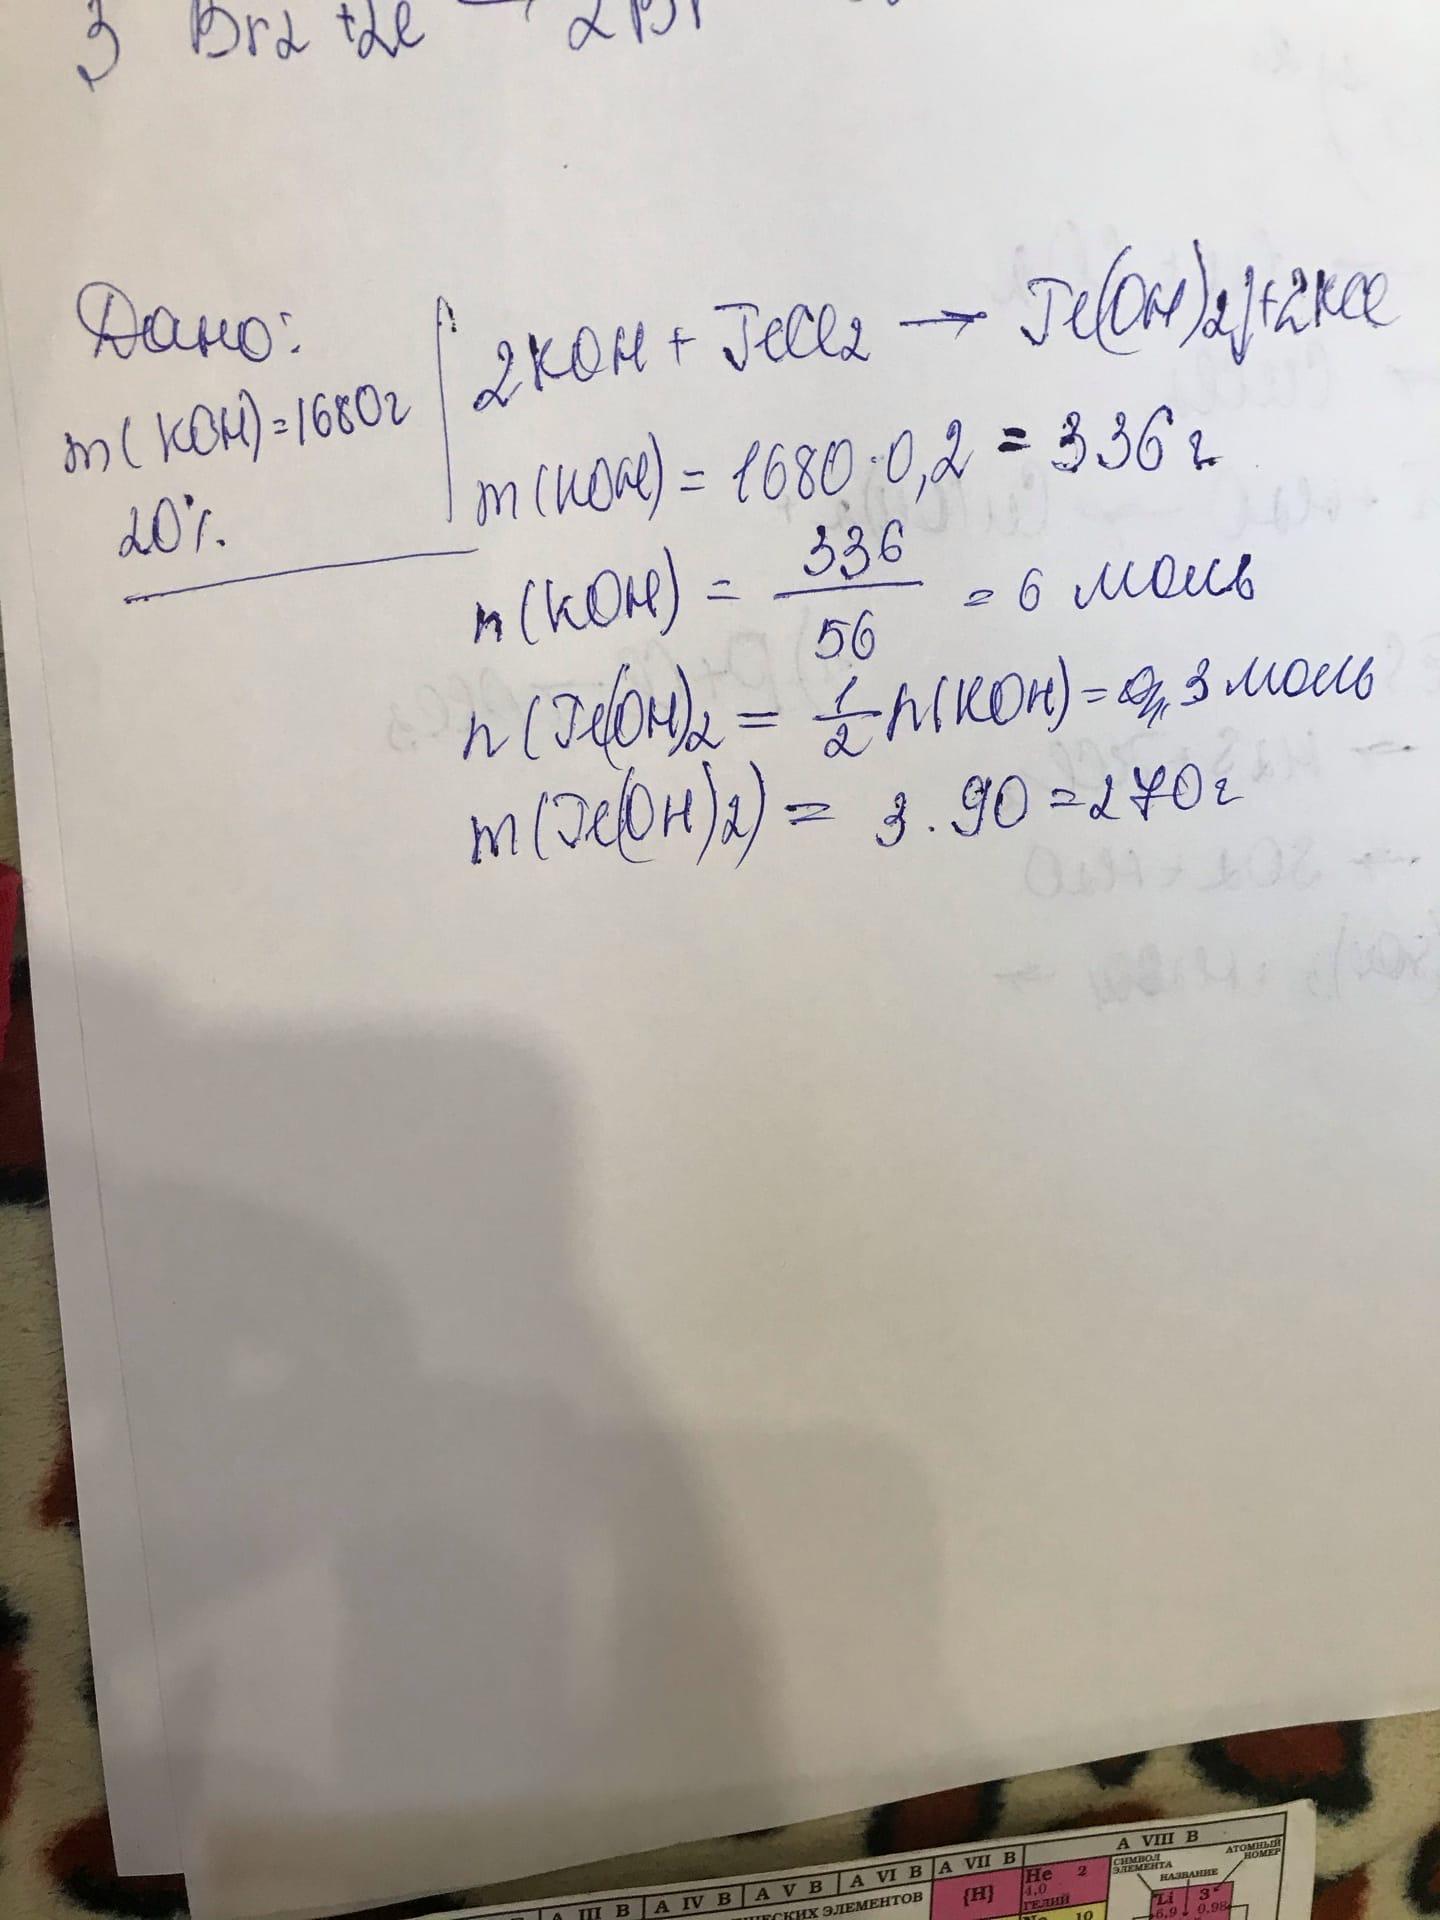 3 Br2 +2e → 2Br
Дано:
m(KOH)=1680г
20%
2KOH + FeCl2 → Fe(OH)2↓+2KCl
m(KOH) = 1680·0,2 = 336 г
n(KOH) = 336/56 = 6 моль
n(Fe(OH)2 = 1/2 n(KOH) = 3 моль
m(Fe(OH)2) = 3·90 = 270г
A III B A IV B A V B A VI B A VII B A VIII B
ЧЕСКИХ ЭЛЕМЕНТОВ
{H}
He 2
4,0
ГЕЛИЙ
СИМВОЛ ЭЛЕМЕНТА
НАЗВАНИЕ
АТОМНЫЙ НОМЕР
Li 3
6,9 0,98
Ne 10